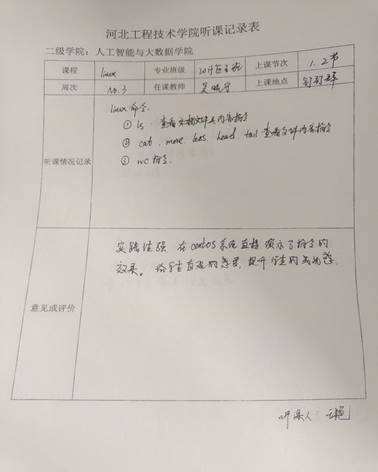 河北工程技术学院听课记录表
二级学院：人工智能与大数据学院
课程 linux 专业班级 上课节次 1.2节
周次 No.3 任课教师 上课地点
听课情况记录
linux 命令.
① ls. 查看文件
② cat, more, less, head, tail 查看文件内容指令
③ wc 指令.
意见或评价
实践性强 在 centos 系统直接演示了指令的
效果。给学生直观的感受,提升学生的
听课人：